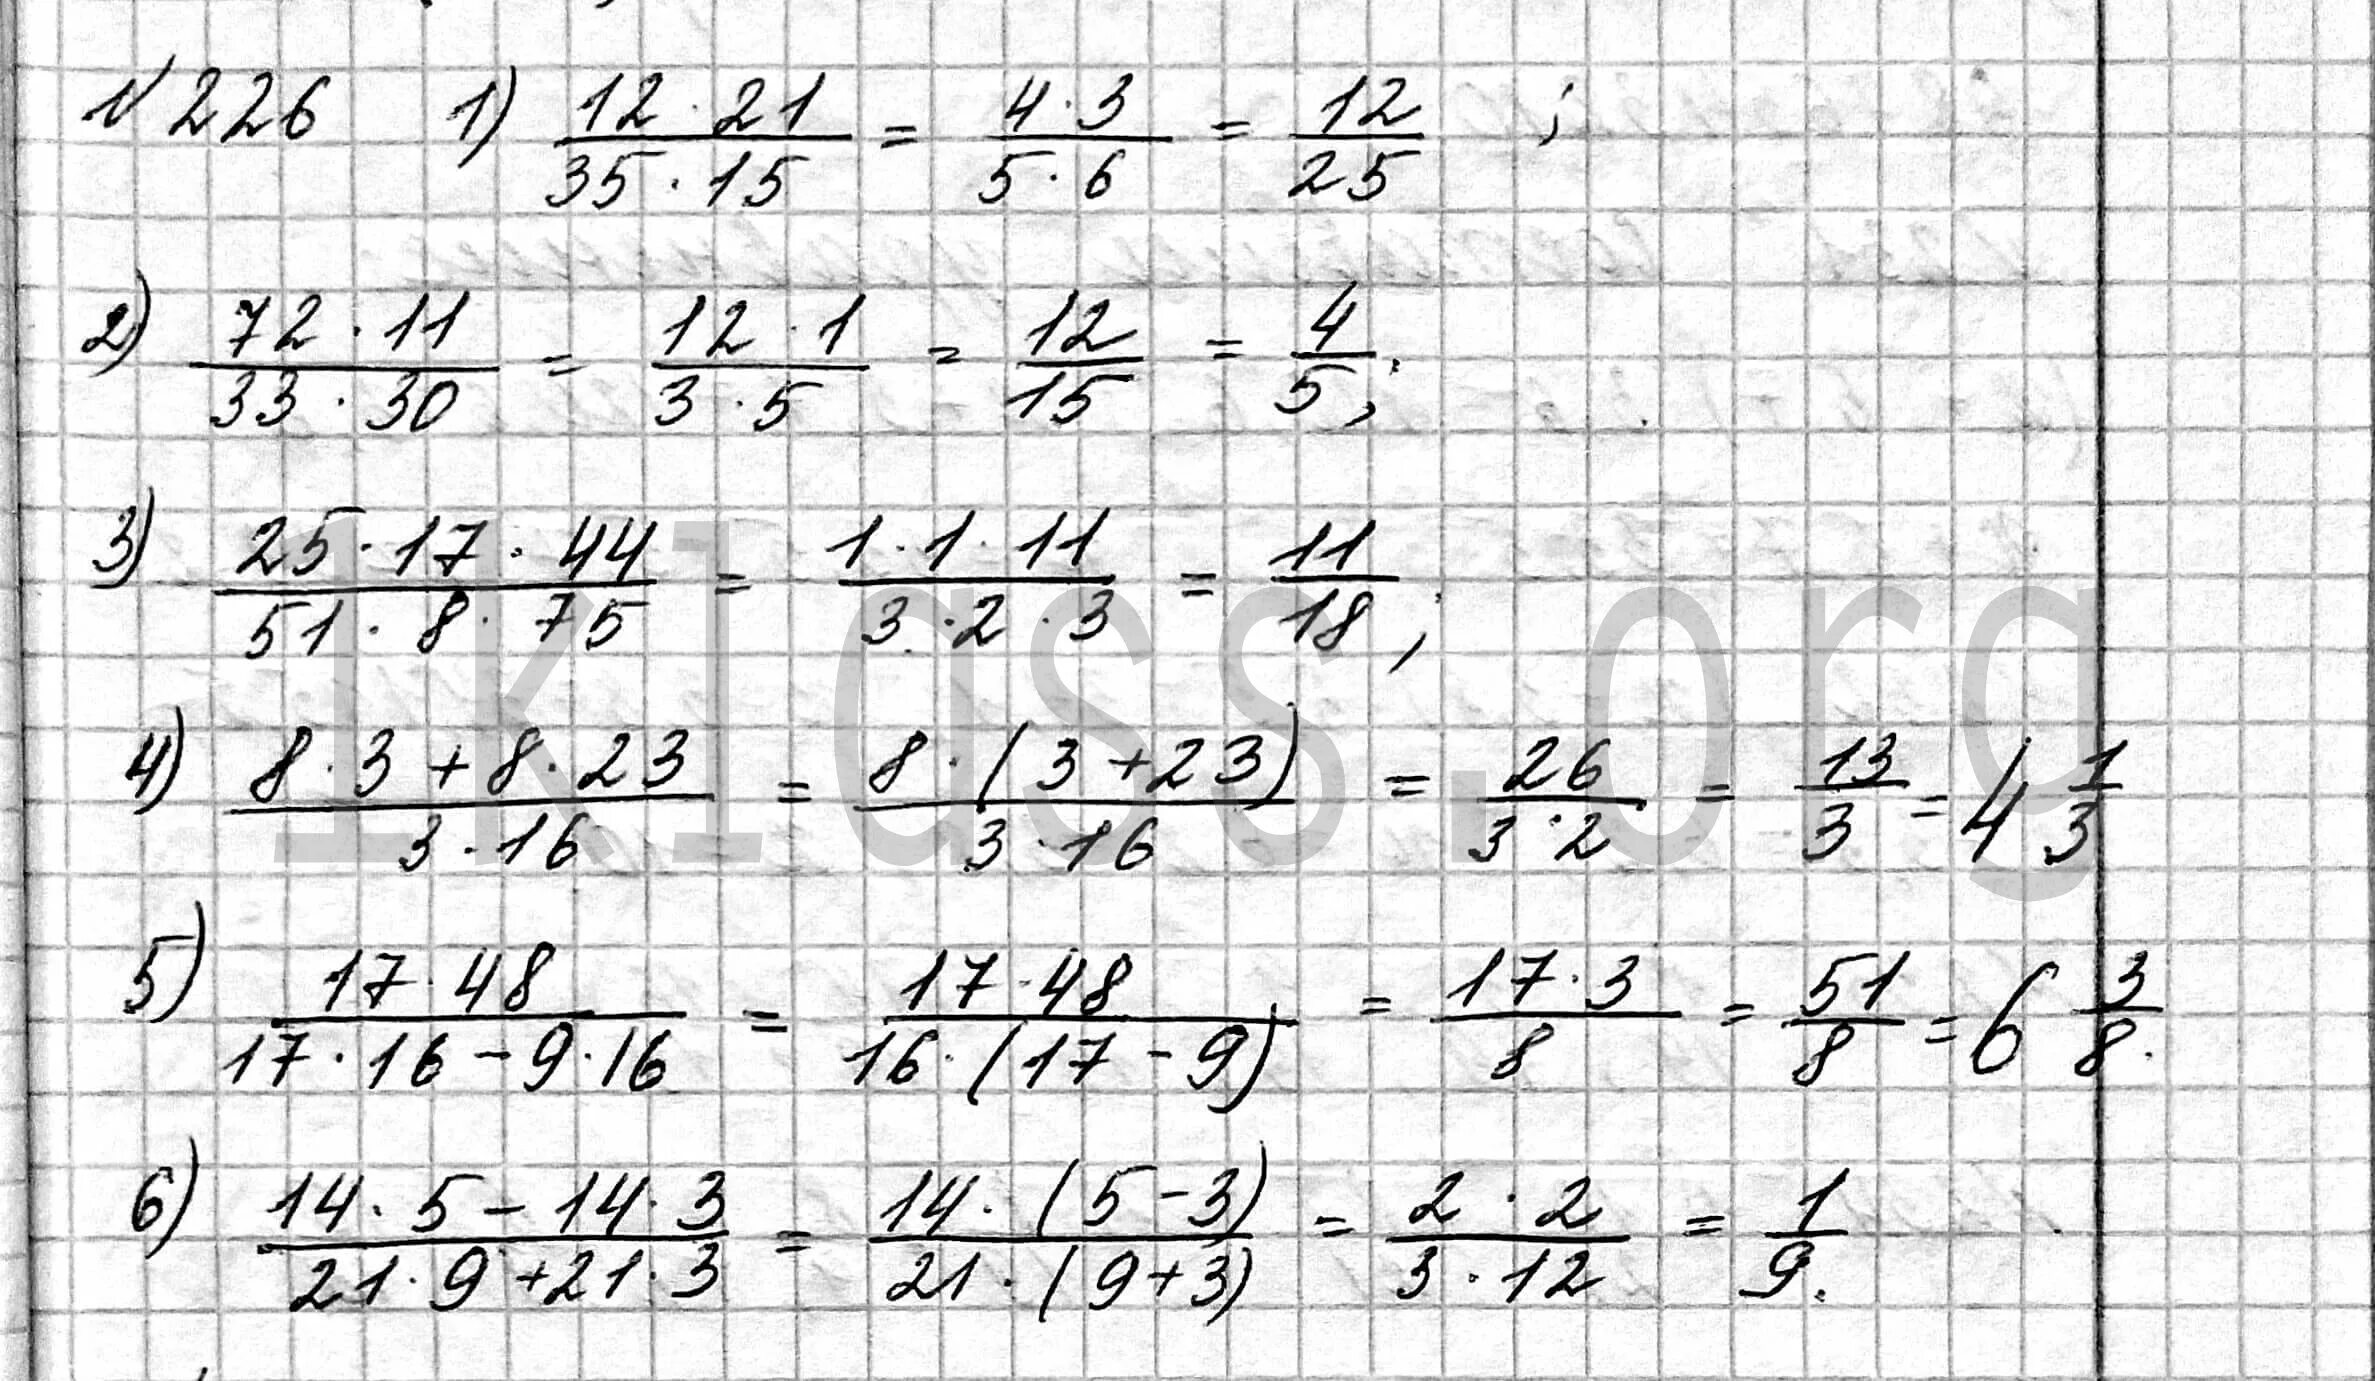 №226 1) (12·21)/(35·15) = (4·3)/(5·6) = 12/25 ;
2) (72·11)/(33·30) = (12·1)/(3·5) = 12/15 = 4/5;
3) (25·17·44)/(51·8·75) = (1·1·11)/(3·2·3) = 11/18;
4) (8·3+8·23)/(3·16) = (8·(3+23))/(3·16) = 26/(3·2) = 13/3 = 4 1/3
5) (17·48)/(17·16-9·16) = (17·48)/(16·(17-9)) = (17·3)/8 = 51/8 = 6 3/8.
6) (14·5-14·3)/(21·9+21·3) = (14·(5-3))/(21·(9+3)) = (2·2)/(3·12) = 1/9.
1klass.org